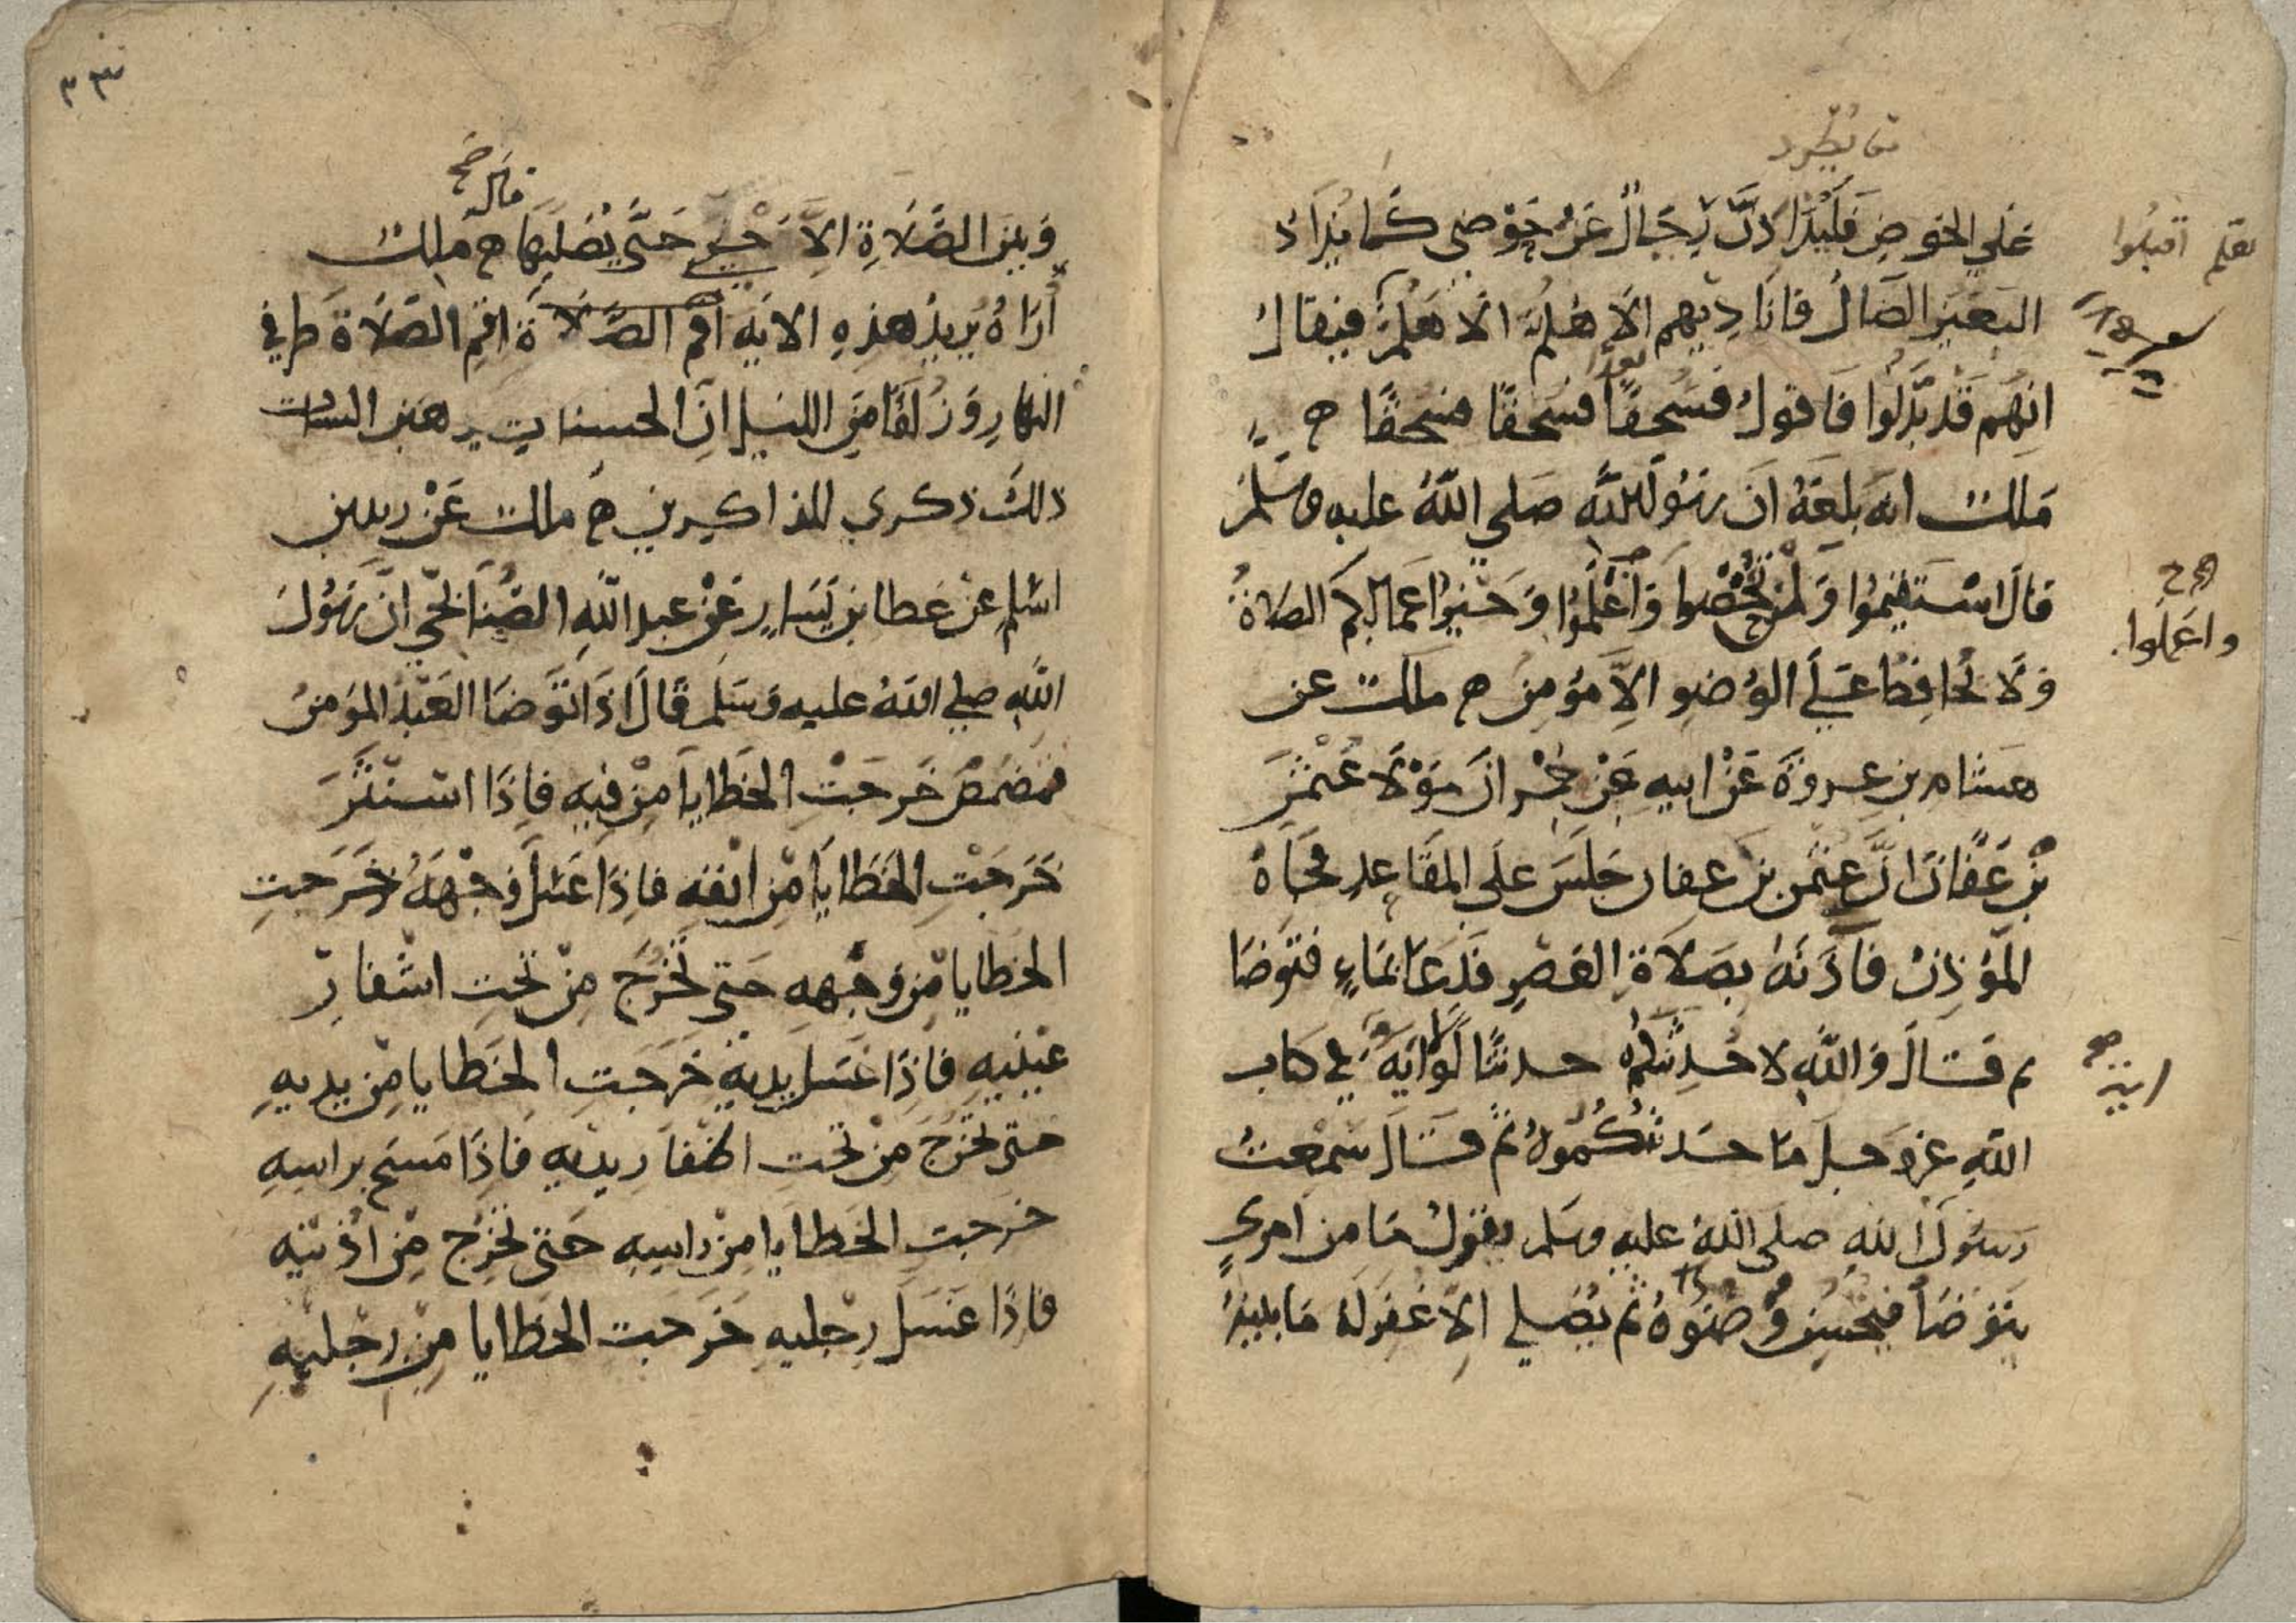 يطرد
على الحوض فليذادن رجال عن حوضي كما يذاد
تعلم اقبلوا
البعير الضال فاناديهم الا هلم الا هلم الا هلم فيقال
انهم قد بدلوا فاقول فسحقا فسحقا فسحقا ح
ملك انه بلغه ان رسول الله صلى الله عليه وسلم
قال استقيموا ولن تحصوا واعلموا وخير اعمالكم الصلاة
واعملوا
ولا يحافظ على الوضو الا مومن ح ملك عن
هشام بن عروة عن ابيه عن حمران مولا عثمن
بن عفان ان عثمن بن عفان جلس على المقاعد فجاه
الموذن فاذنه بصلاة العصر فدعا بماء فتوضا
ثم قال والله لاحدثنكم حديثا لولا ايه في كتاب
الله عز وجل ما حدثتكموه ثم قال سمعت
رسول الله صلى الله عليه وسلم يقول ما من امرئ
يتوضا فيحسن وضوه ثم يصلي الا غفر له ما بينه
٣٣
قال صح
وبين الصلاة الاخرى حتى يصليها ح ملك
اراه يريد هذه الايه اقم الصلاة اقم الصلاة طرفي
النهار وزلفا من الليل ان الحسنات يذهبن السيات
ذلك ذكرى للذاكرين ح ملك عن زيد بن
اسلم عن عطا بن يسار عن عبد الله الصنابحي ان رسول
الله صلى الله عليه وسلم قال اذا توضا العبد المومن
فمضمض خرجت الخطايا من فيه فاذا استنثر
خرجت الخطايا من انفه فاذا غسل وجهه خرجت
الخطايا من وجهه حتى تخرج من تحت اشفار
عينيه فاذا غسل يديه خرجت الخطايا من يديه
حتى تخرج من تحت اظفار يديه فاذا مسح براسه
خرجت الخطايا من راسه حتى تخرج من اذنيه
فاذا غسل رجليه خرجت الخطايا من رجليه